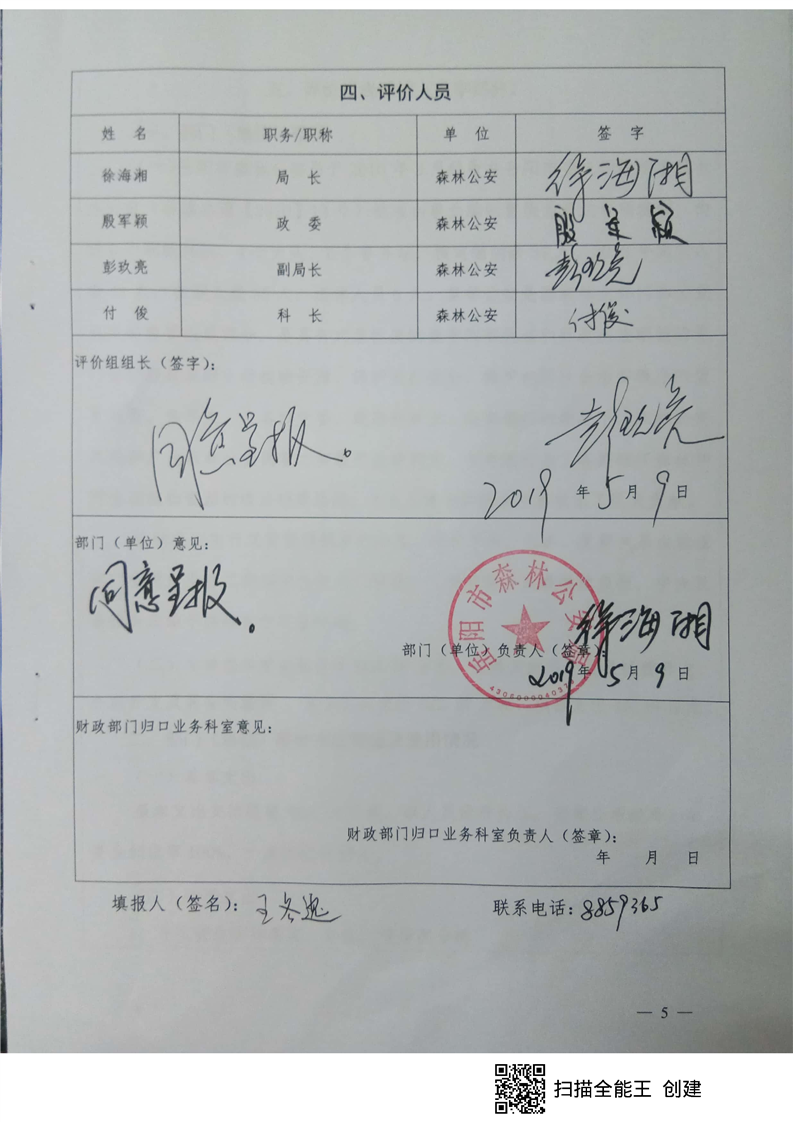 四、评价人员
姓 名 职务/职称 单 位 签 字
徐海湘 局 长 森林公安 徐海湘
殷军颖 政 委 森林公安 殷军颖
彭玖亮 副局长 森林公安 彭玖亮
付 俊 科 长 森林公安 付俊
评价组组长（签字）：
同意呈报。 彭玖亮
2019 年 5 月 9 日
部门（单位）意见：
同意呈报。
岳阳市森林公安局
徐海湘
部门（单位）负责人（签章）：
2019 年 5 月 9 日
财政部门归口业务科室意见：
财政部门归口业务科室负责人（签章）：
年 月 日
填报人（签名）： 联系电话：8859365
— 5 —
扫描全能王 创建